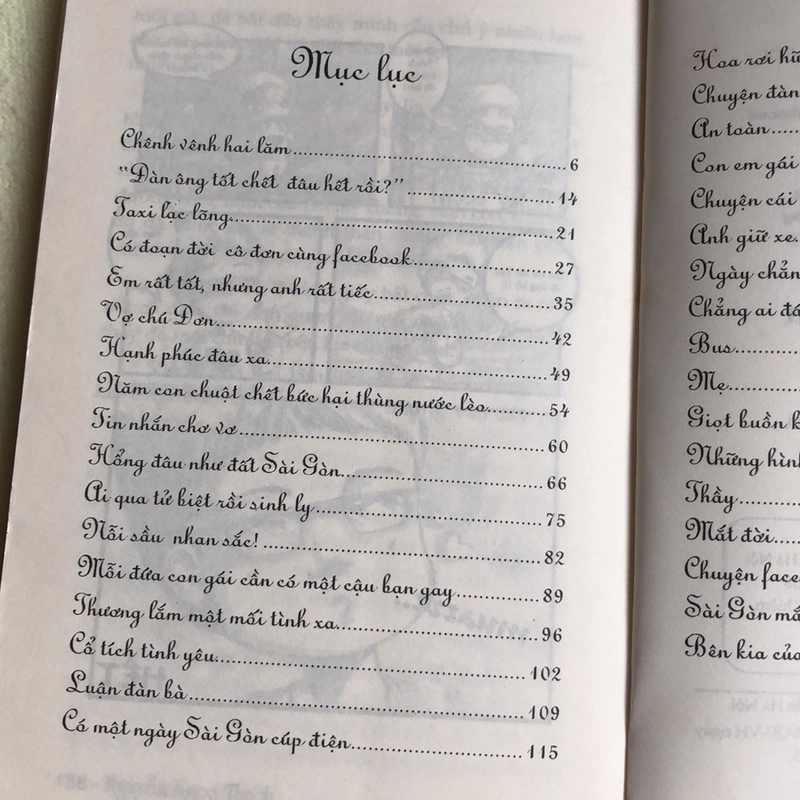 Mục lục
Chênh vênh hai lăm 6
"Đàn ông tốt chết đâu hết rồi?" 14
Taxi lạc lõng 21
Có đoạn đời cô đơn cùng facebook 27
Em rất tốt, nhưng anh rất tiếc 35
Vợ chú Đơn 42
Hạnh phúc đâu xa 49
Năm con chuột chết bức hại thùng nước lèo 54
Tin nhắn chơ vơ 60
Hổng đâu như đất Sài Gòn 66
Ai qua tử biệt rồi sinh ly 75
Nỗi sầu nhan sắc! 82
Mỗi đứa con gái cần có một cậu bạn gay 89
Thương lắm một mối tình xa 96
Cổ tích tình yêu 102
Luận đàn bà 109
Có một ngày Sài Gòn cúp điện 115
Hoa rơi
Chuyện đàn
An toàn
Con em gái
Chuyện cái
Anh giữ xe
Ngày chẳn
Chẳng ai
Bus
Mẹ
Giọt buồn
Những hìn
Thầy
Mắt đời
Chuyện face
Sài Gòn
Bên kia của